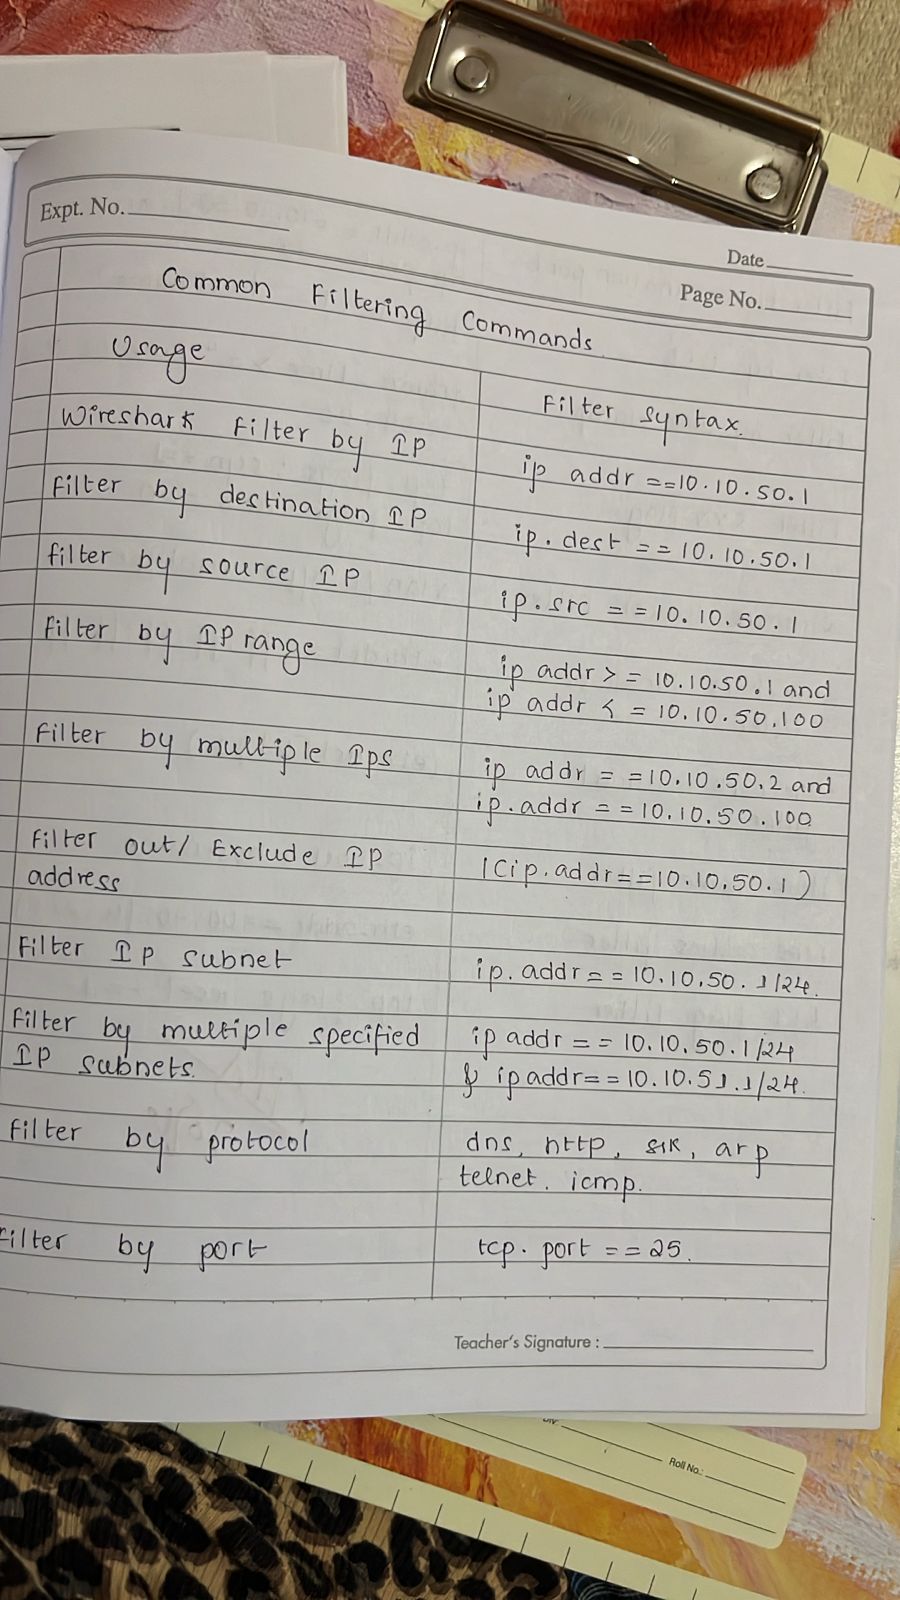 Expt. No.
Date
Page No.
Common Filtering Commands
Usage
Filter syntax.
Wireshark Filter by IP
ip addr ==10.10.50.1
Filter by destination IP
ip.dest == 10.10.50.1
filter by source IP
ip.src == 10.10.50.1
Filter by IP range
ip addr >= 10.10.50.1 and
ip addr <= 10.10.50.100
Filter by multiple Ips
ip addr == 10.10.50.2 and
ip.addr == 10.10.50.100
Filter out/ Exclude IP
address
!(ip.addr==10.10.50.1)
Filter IP subnet
ip.addr== 10.10.50.1/24.
Filter by multiple specified
IP subnets.
ip addr == 10.10.50.1/24
& ip addr== 10.10.51.1/24.
Filter by protocol
dns, http, arp
telnet. icmp.
Filter by port
tcp. port == 25.
Teacher's Signature :
Roll No.: